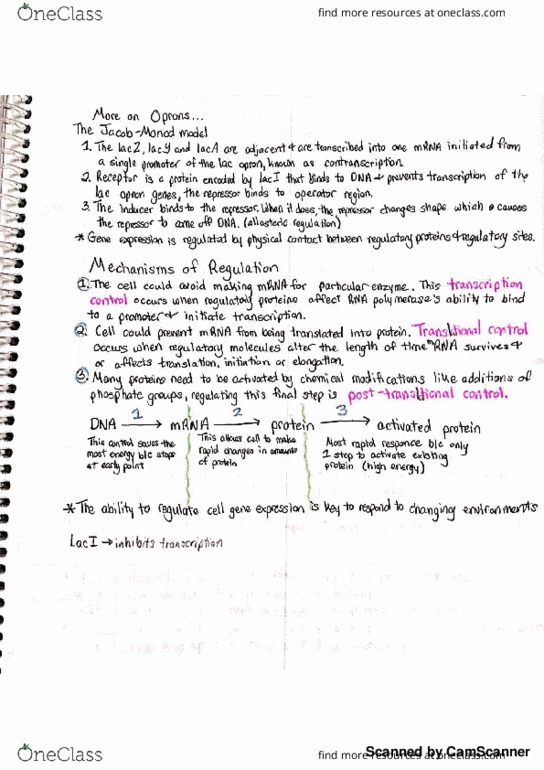 OneClass
find more resources at oneclass.com
More on Oprons...
The Jacob-Monod model
1. The lacZ, lacY and lacA are adjacent + are transcribed into one mRNA initiated from
a single promoter of the lac opron, known as contranscription.
2. Receptor is a protein encoded by lacI that binds to DNA + prevents transcription of the
lac opron genes, the repressor binds to operator region.
3. The inducer binds to the repressor. When it does, the repressor changes shape which causes
the repressor to come off DNA. (allosteric regulation)
* Gene expression is regulated by physical contact between regulatory proteins + regulatory sites.
Mechanisms of Regulation
1. The cell could avoid making mRNA for particular enzyme. This transcription
control occurs when regulatory proteins affect RNA polymerase's ability to bind
to a promoter + initiate transcription.
2. Cell could prevent mRNA from being translated into protein. Translational control
occurs when regulatory molecules alter the length of time mRNA survives +
or affects translation, initiation or elongation.
3. Many proteins need to be activated by chemical modifications like additions of
phosphate groups, regulating this final step is post-translational control.
1 2 3
DNA → mRNA → protein → activated protein
This control saves the
most energy b/c stops
at early point
This allows cell to make
rapid changes in amounts
of protein
Most rapid response b/c only
1 step to activate existing
protein (high energy)
* The ability to regulate cell gene expression is key to respond to changing environments
LacI → inhibits transcription
OneClass
find more resources at oneclass.com
Scanned by CamScanner